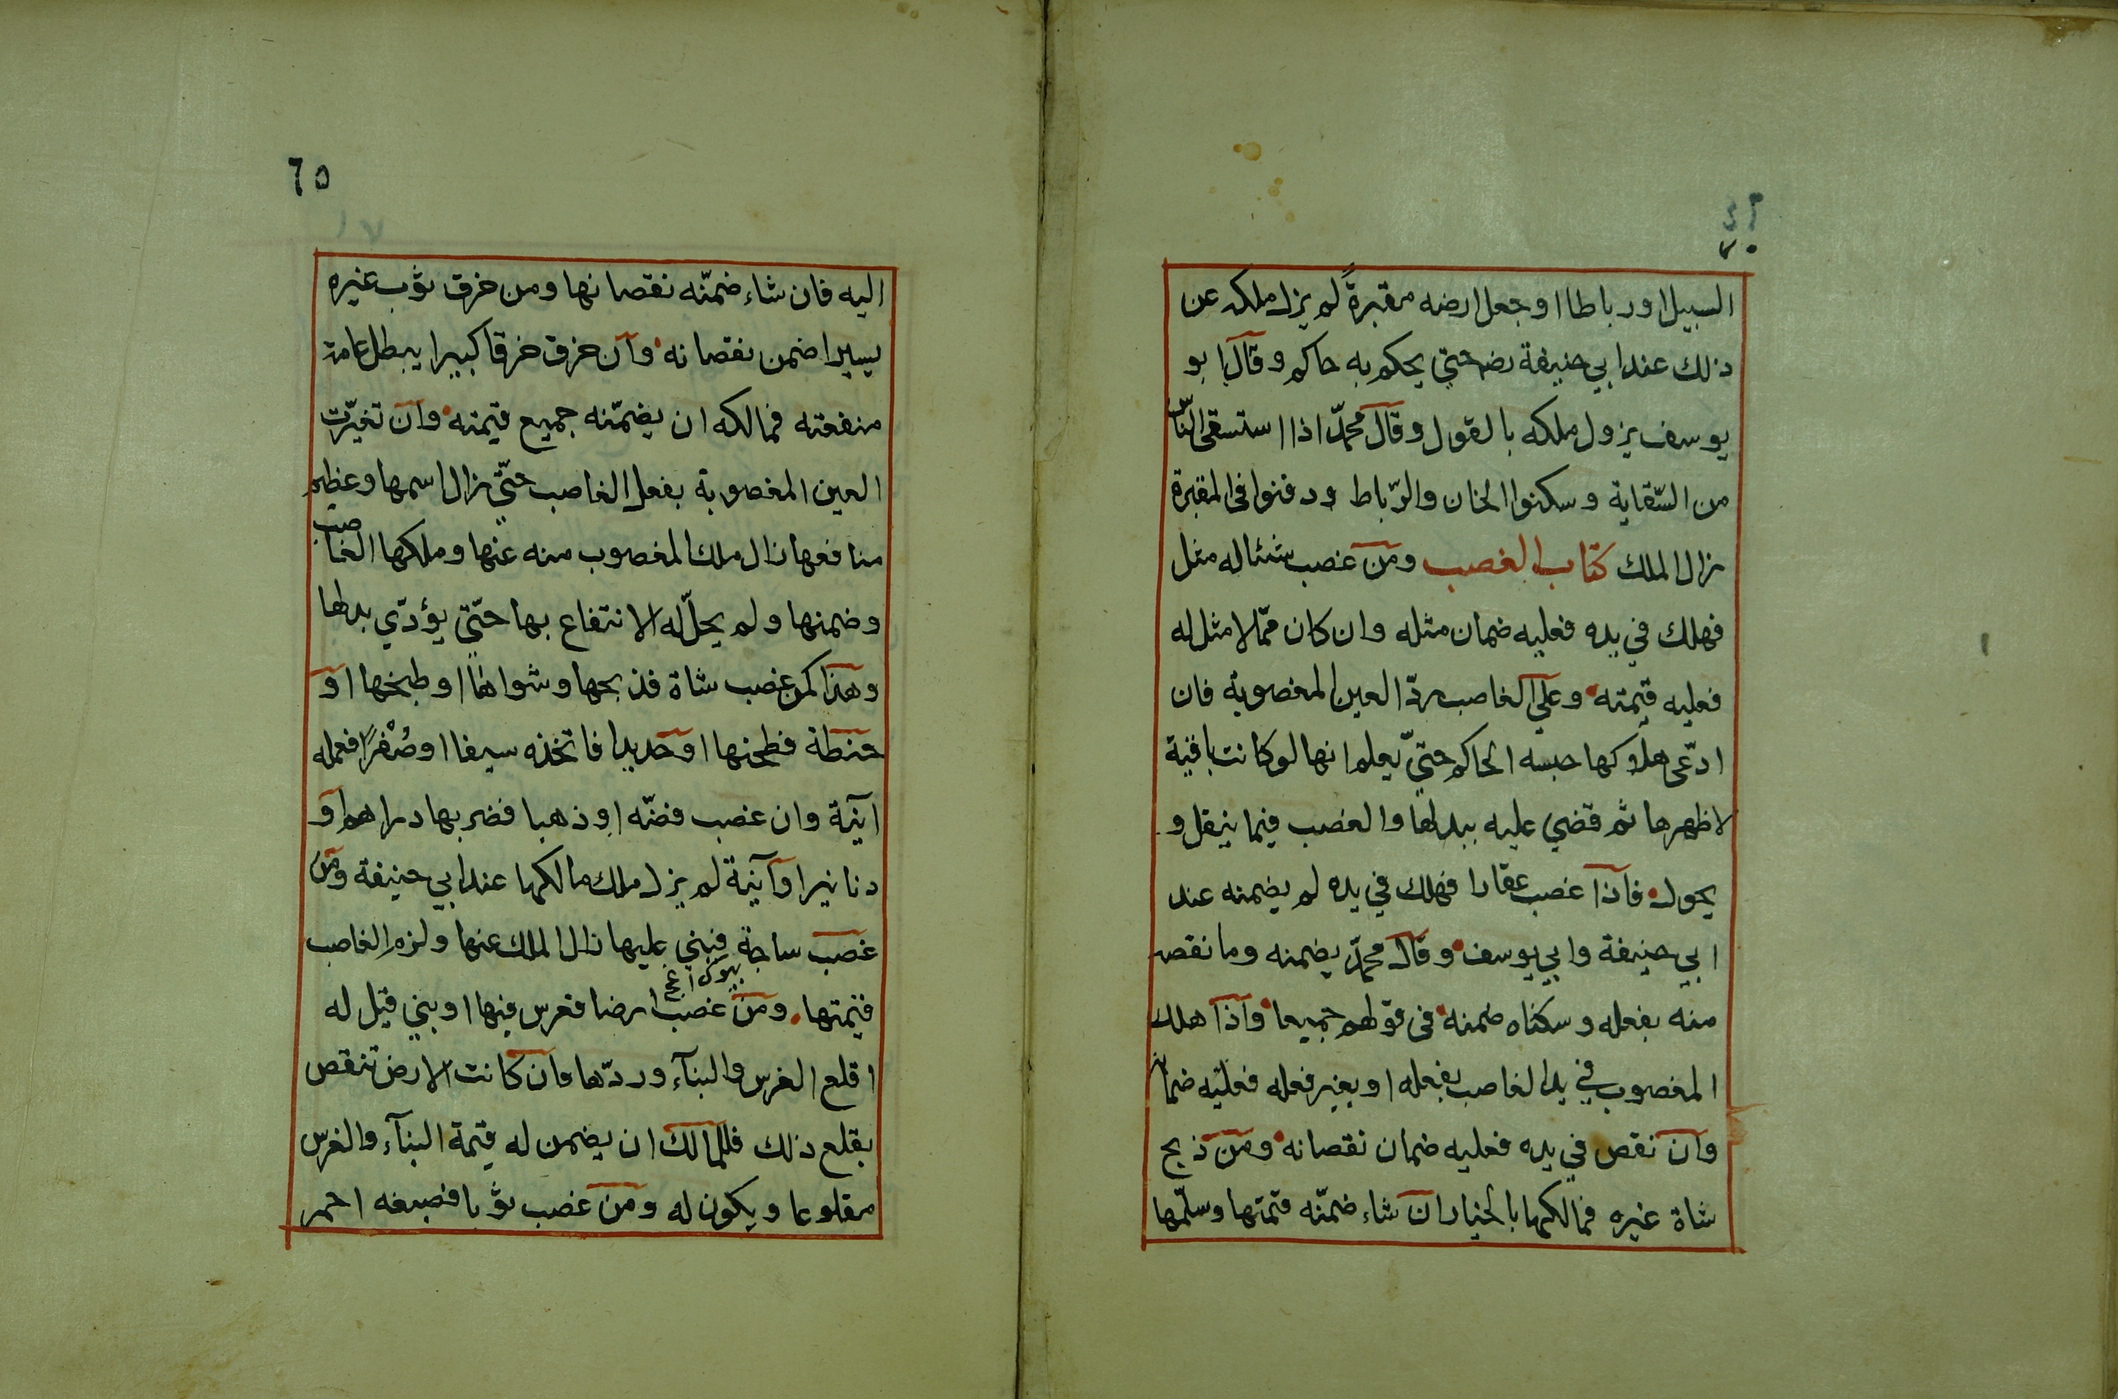 السبيل او رباطا او جعل ارضه مقبرةً لم يزل ملكه عن
ذلك عند ابي حنيفة رضـ حتي يحكم به حاكم وقال ابو
يوسف يزول ملكه بالقول وقال محمّد اذا استسقى النّاس
من السّقاية وسكنوا الخان والرّباط ودفنوا فى المقبرة
زال الملك كتاب الغصب ومن غصب شئا له مثل
فهلك في يده فعليه ضمان مثله وان كان ممّا لا مثل له
فعليه قيمته وعلي الغاصب ردّ العين المغصوبة فان
ادّعى هلاكها حبسه الحاكم حتيّ يعلم انها لو كانت باقية
لاظهرها ثم قضي عليه ببدلها والغصب فيما ينقل و
يحول فاذا غصب عقارا فهلك في يده لم يضمنه عند
ابي حنيفة وابي يوسف وقال محمّد يضمنه وما نقص
منه بفعله وسكناه ضمنه فى قولهم جميعا واذا هلك
المغصوب في يد الغاصب بفعله او بغير فعله فعليه ضمانه
وان نقص في يده فعليه ضمان نقصانه ومن ذبح
شاة غيره فمالكها بالخيار ان شاء ضمنّه قيمتها وسلّمها
٦٥
اليه فان شاء ضمنّه نقصانها ومن خرق ثوب غيره
يسيرا ضمن نقصانه وان خرق خرقا كبيرا يبطل عامة
منفعته فمالكه ان يضمّنه جميع قيمته وان تغيّرت
العين المغصوبة بفعل الغاصب حتّي زال اسمها وعظم
منافعها زال ملك المغصوب منه عنها وملكها الغاصب
وضمنها ولم يحلّ له الانتفاع بها حتّي يؤدّي بدلها
وهذا كمن غصب شاة فذبحها وشواها او طبخها او
حنطة فطحنها او حديدا فاتخذه سيفا او صُفْرًا فعمله
آنية وان غصب فضّه او ذهبا فضربها دراهم او
دنانير او آنية لم يزل ملك مالكها عند ابي حنيفة ومن
غصب ساجة فبني عليها زال الملك عنها ولزم الغاصب
قيمتها ومن غصب ارضا فغرس فيها او بني قيل له
اقلع الغرس والبنآء وردّها وان كانت الارض تنقص
بقلع ذلك فللمالك ان يضمن له قيمة البنآء والغرس
مقلوعا ويكون له ومن غصب ثوبا فصبغه احمر